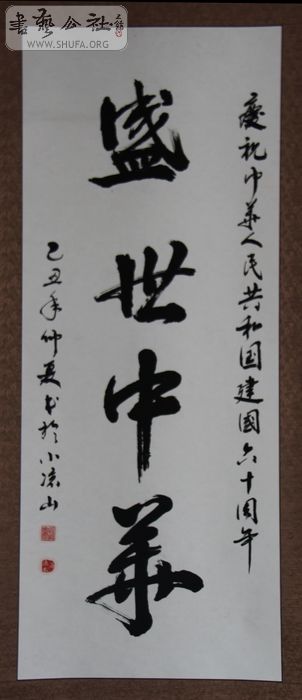 書藝公社
WWW.SHUFA.ORG
慶祝中華人民共和国建國六十周年
盛世中華
己丑年仲夏書於小凉山